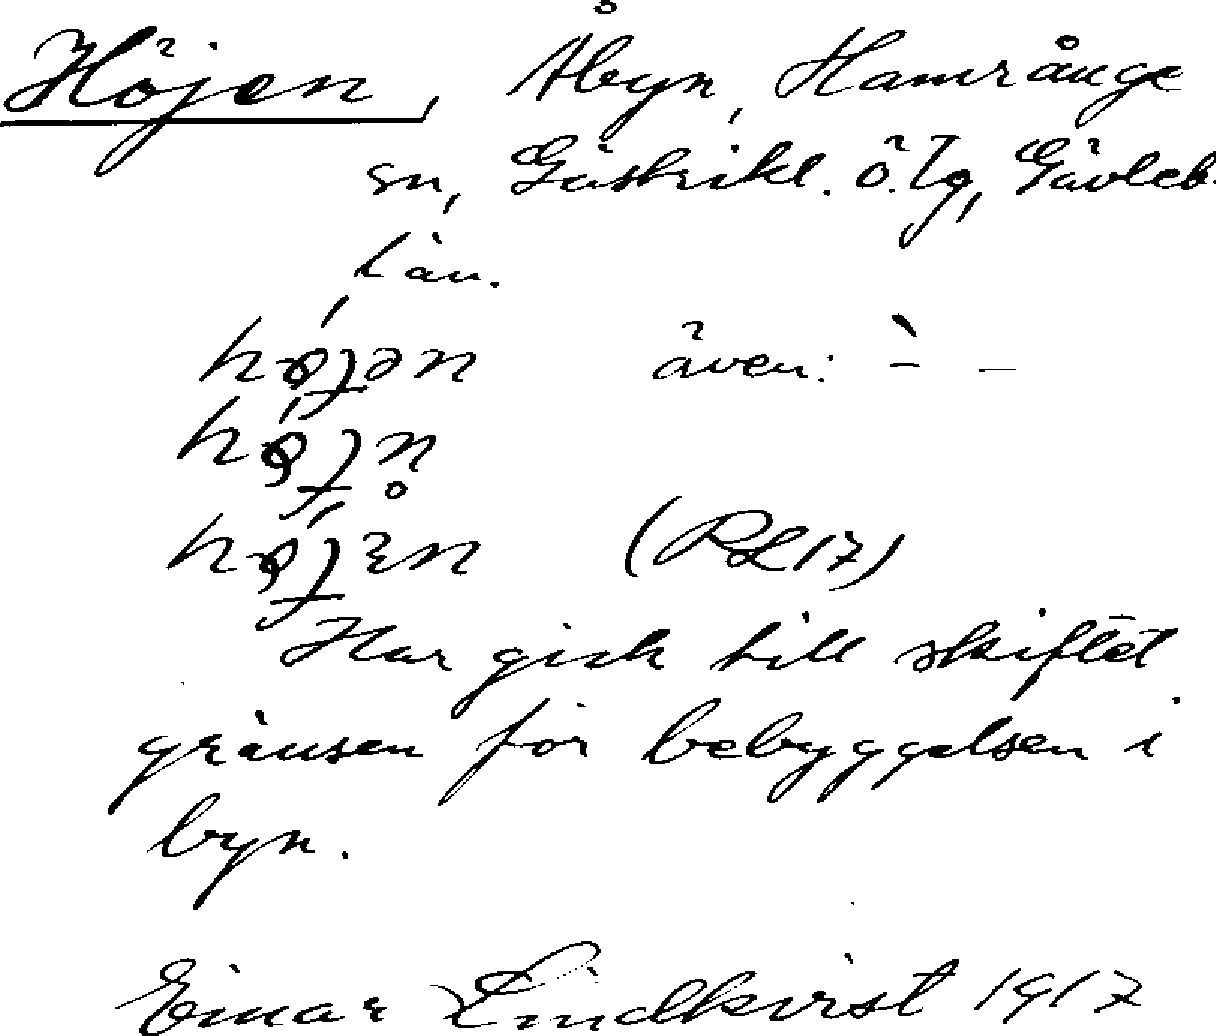 Höjen, Åbyn, Hamrånge
sn, Gästrikl. ö. tg, Gävleb.
län.
højən även: ` – –
højn̥
højɛn (RL17)
Har gick till skiftet
gränsen för bebyggelsen i
byn.
Einar Lindkvist 1917